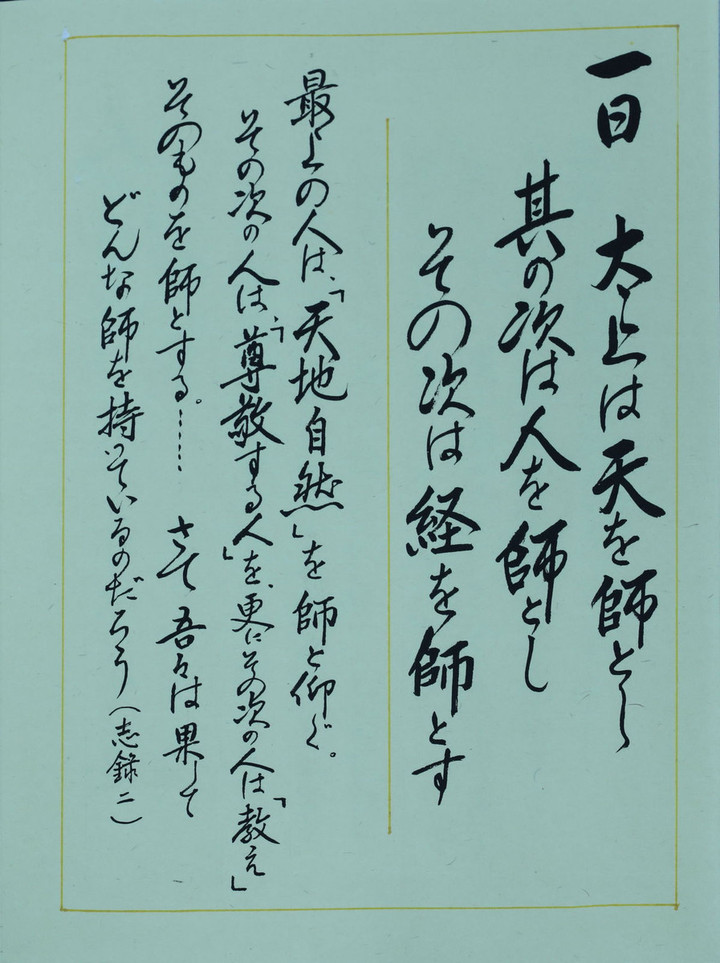 一日 太上は天を師とし
其の次は人を師とし
その次は経を師とす
最上の人は、「天地自然」を師と仰ぐ。
その次の人は、「尊敬する人」を、更にその次の人は「教え」
そのものを師とする。…… さて吾々は果して
どんな師を持っているのだろう（志録二）